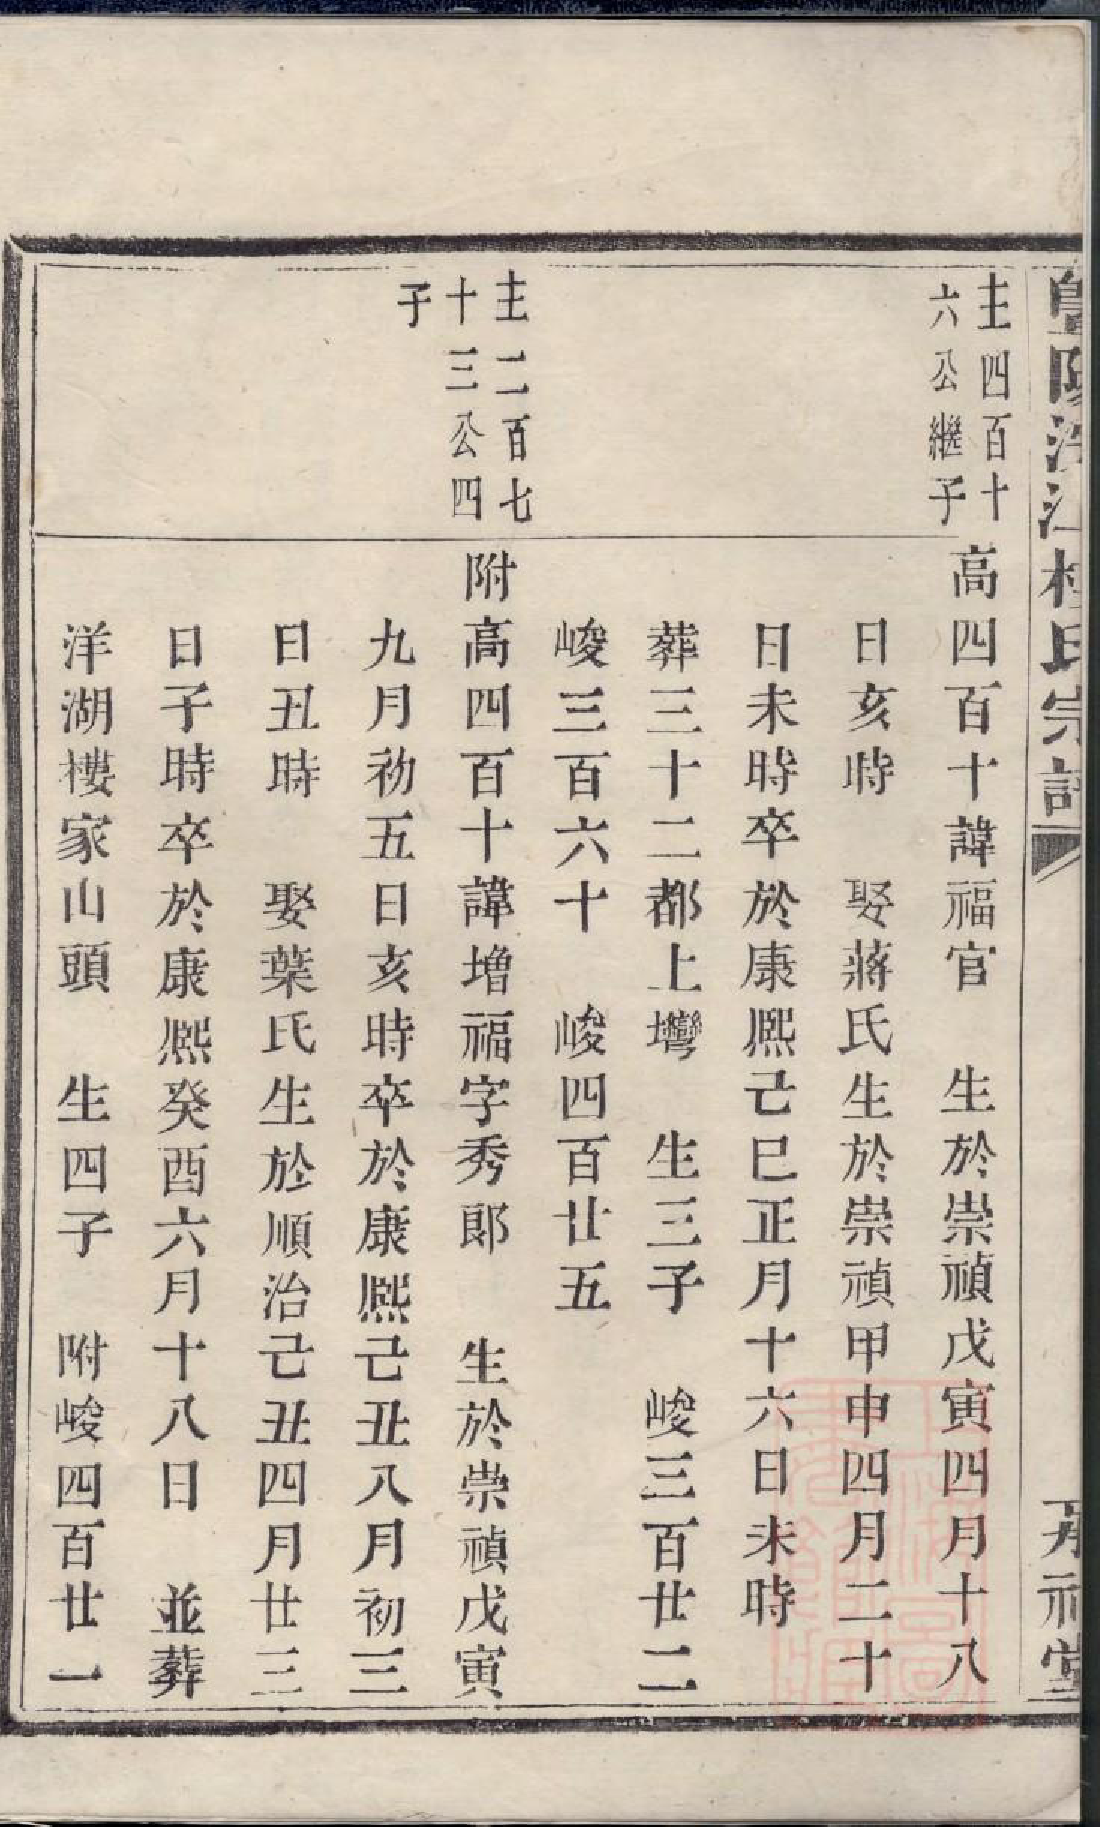 暨陽江樓氏宗譜
主四百十
六公繼子
高四百十諱福官　生於崇禎戊寅四月十八
日亥時　娶蔣氏生於崇禎甲申四月二十
日未時卒於康熙己巳正月十六日未時
葬三十二都上灣　生三子　峻三百廿二
峻三百六十　峻四百廿五
主二百七
十三公四
子
附高四百十諱增福字秀郎　生於崇禎戊寅
九月初五日亥時卒於康熙己丑八月初三
日丑時　娶葉氏生於順治己丑四月廿三
日子時卒於康熙癸酉六月十八日　並葬
洋湖樓家山頭　生四子　附峻四百廿一